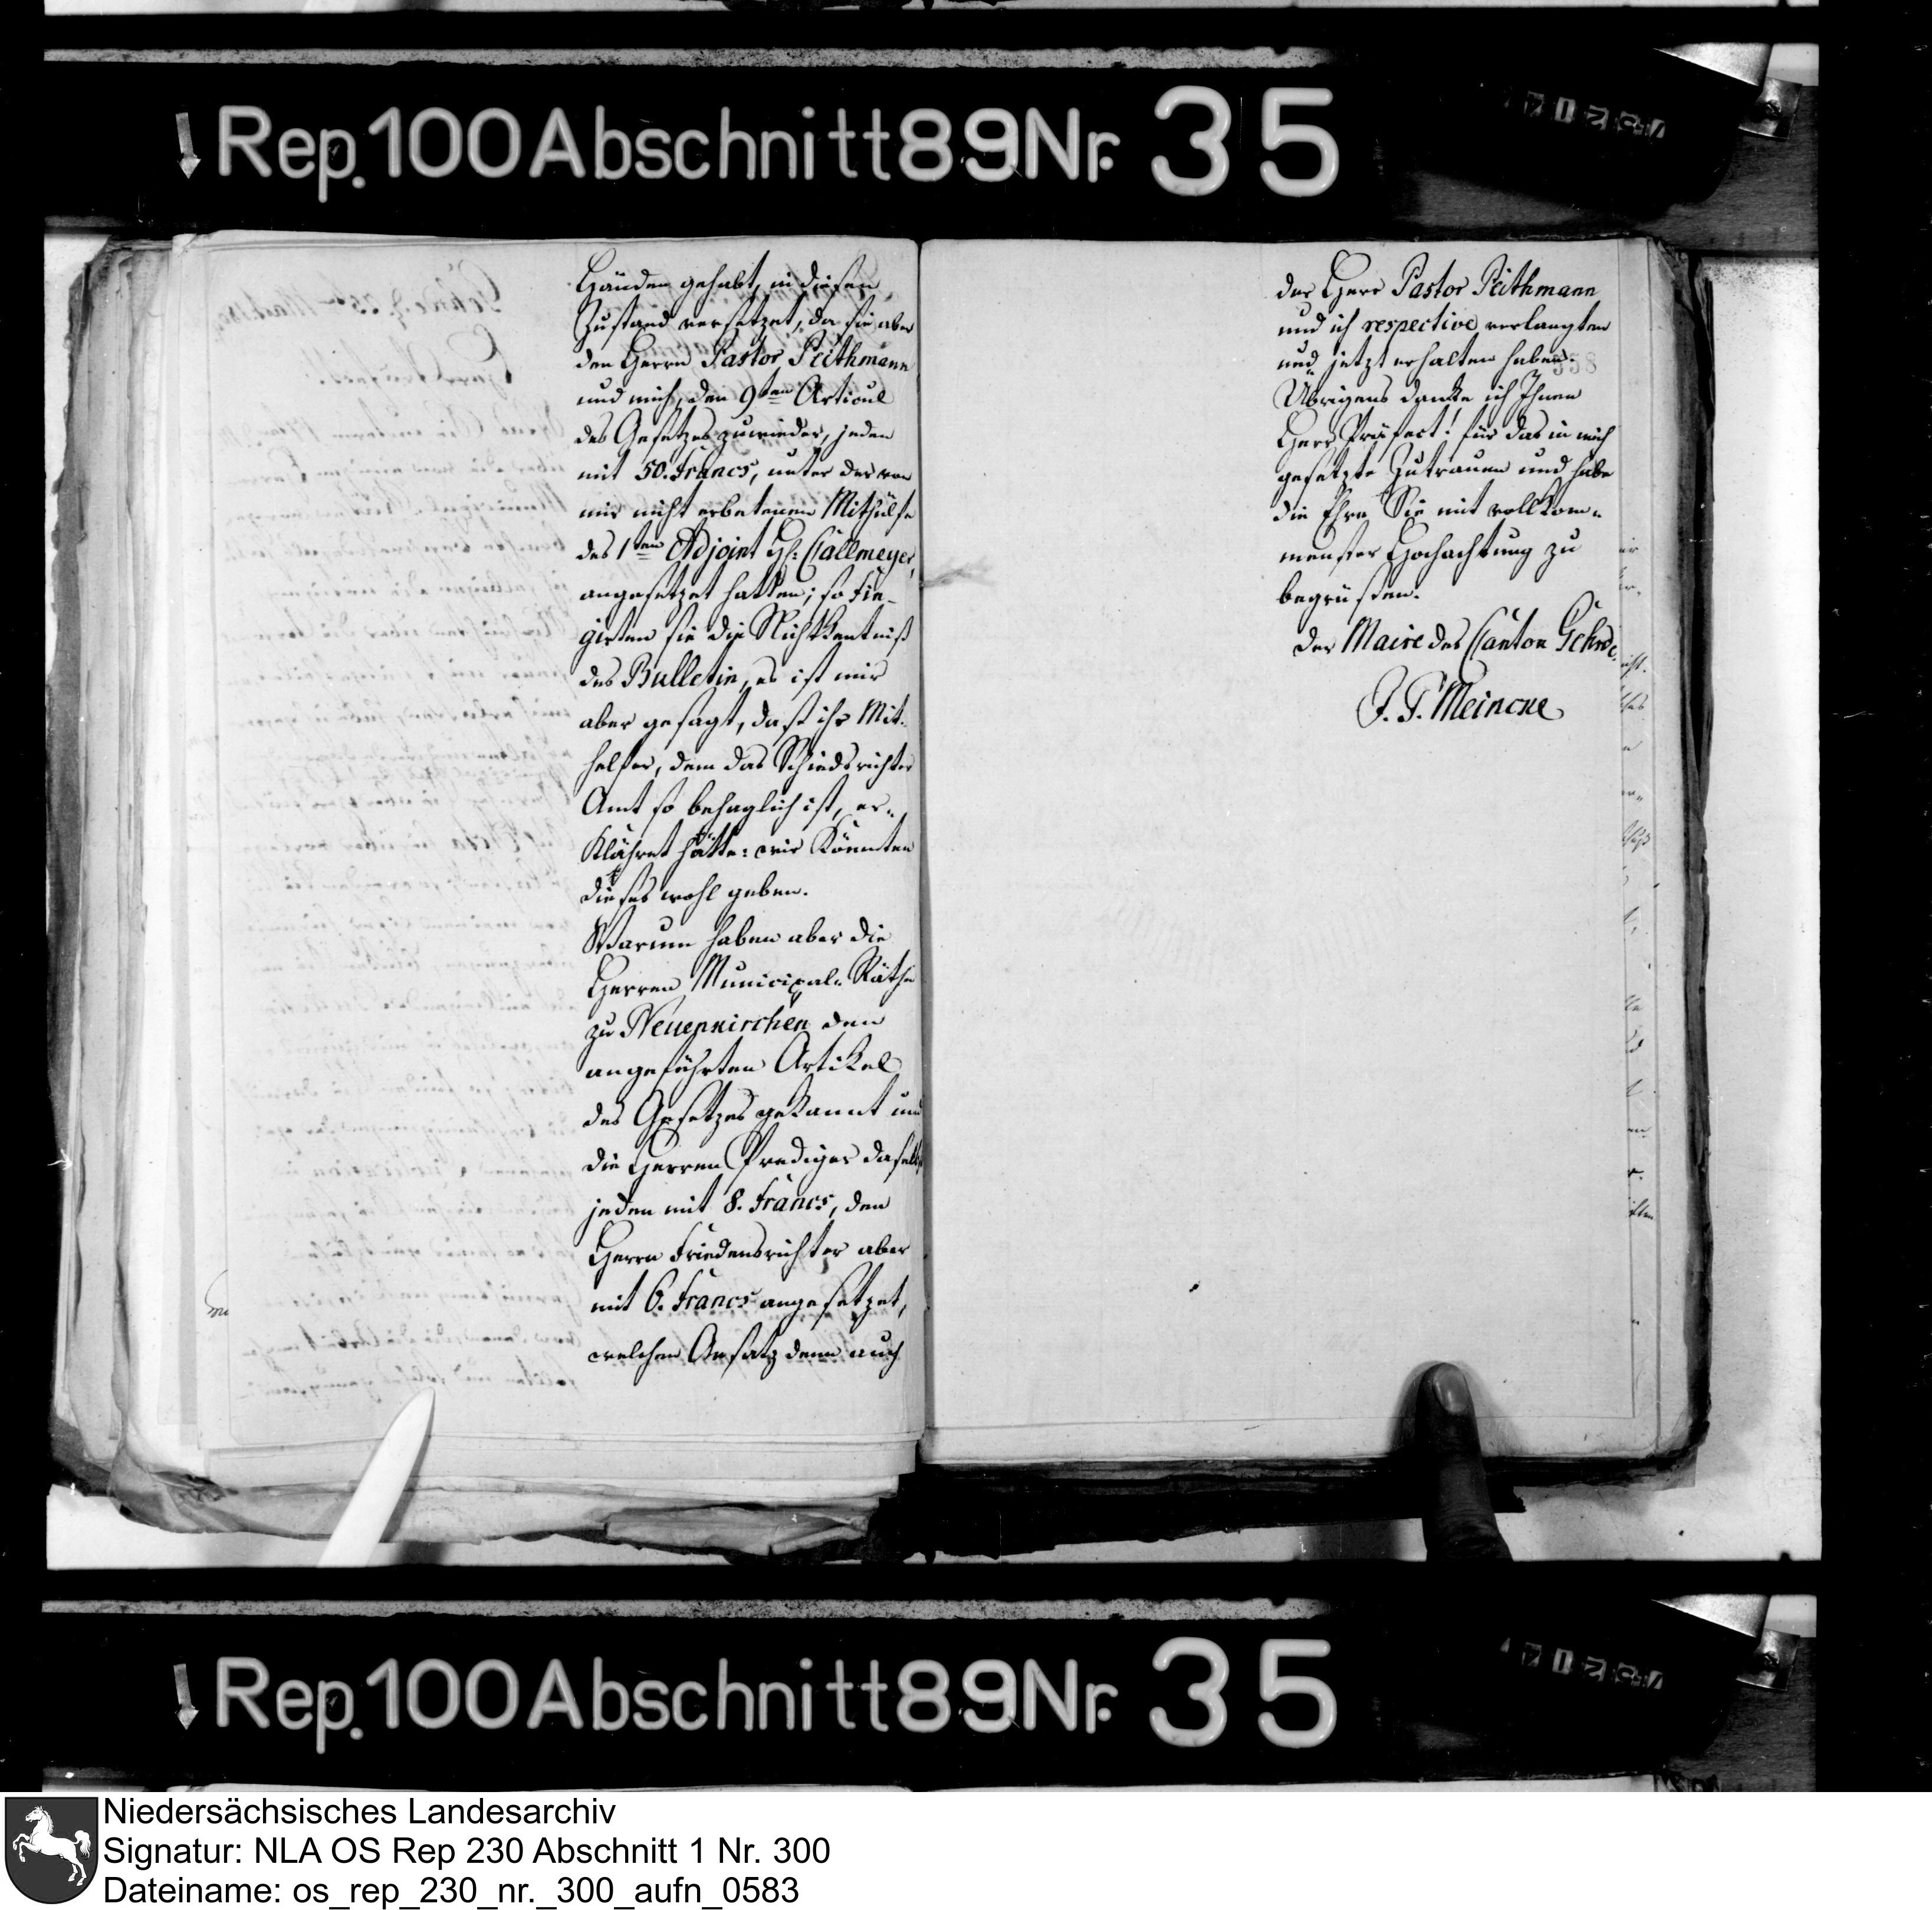 Rep. 100 Abschnitt 89 Nr. 35
Händen gehabt, in diesen
Zustand versetzet, da sie aber
den Herrn Pastor Peithmann
und mich, den 9ten Articul
des Gesetzes zuwieder, jeden
mit 50. Francs, unter der von
mir nicht erbetenen Mithülfe
des 1ten Adjoint H: Callmeyer,
angesetzet hatten; so Fin-
girten sie die Nichtkentniß
des Bulletin, es ist mir
aber gesagt, daß ihr Mit-
helfer, dem das Schiedsrichter
Amt so behaglich ist, er-
klähret hätte: wir könnten
dieses wohl geben.
Warum haben aber die
Herren Municipal-Räthe
zu Neuenkirchen den
angeführten Artikel
des Gesetzes gekannt und
die Herren Prediger daselbst
jeden mit 8. Francs, den
Herrn Friedensrichter aber
mit 6. Francs angesetzet,
welchen Ansatz denn auch
der Herr Pastor Peithmann
und ich respective verlangten
und jetzt erhalten haben.
338
Übrigens danke ich Ihnen
Herr Präfect! für das in mich
gesetzte Zutrauen und habe
die Ehre Sie mit vollkom-
menster Hochachtung zu
begrüßen.
Der Maire des Canton Gehrde.
J. F. Meincke
Rep. 100 Abschnitt 89 Nr. 35
Niedersächsisches Landesarchiv
Signatur: NLA OS Rep 230 Abschnitt 1 Nr. 300
Dateiname: os_rep_230_nr._300_aufn_0583